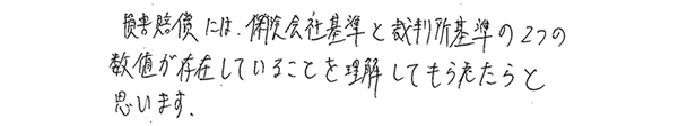 損害賠償には、保険会社基準と裁判所基準の2つの
数値が存在していることを理解してもらえたらと
思います。